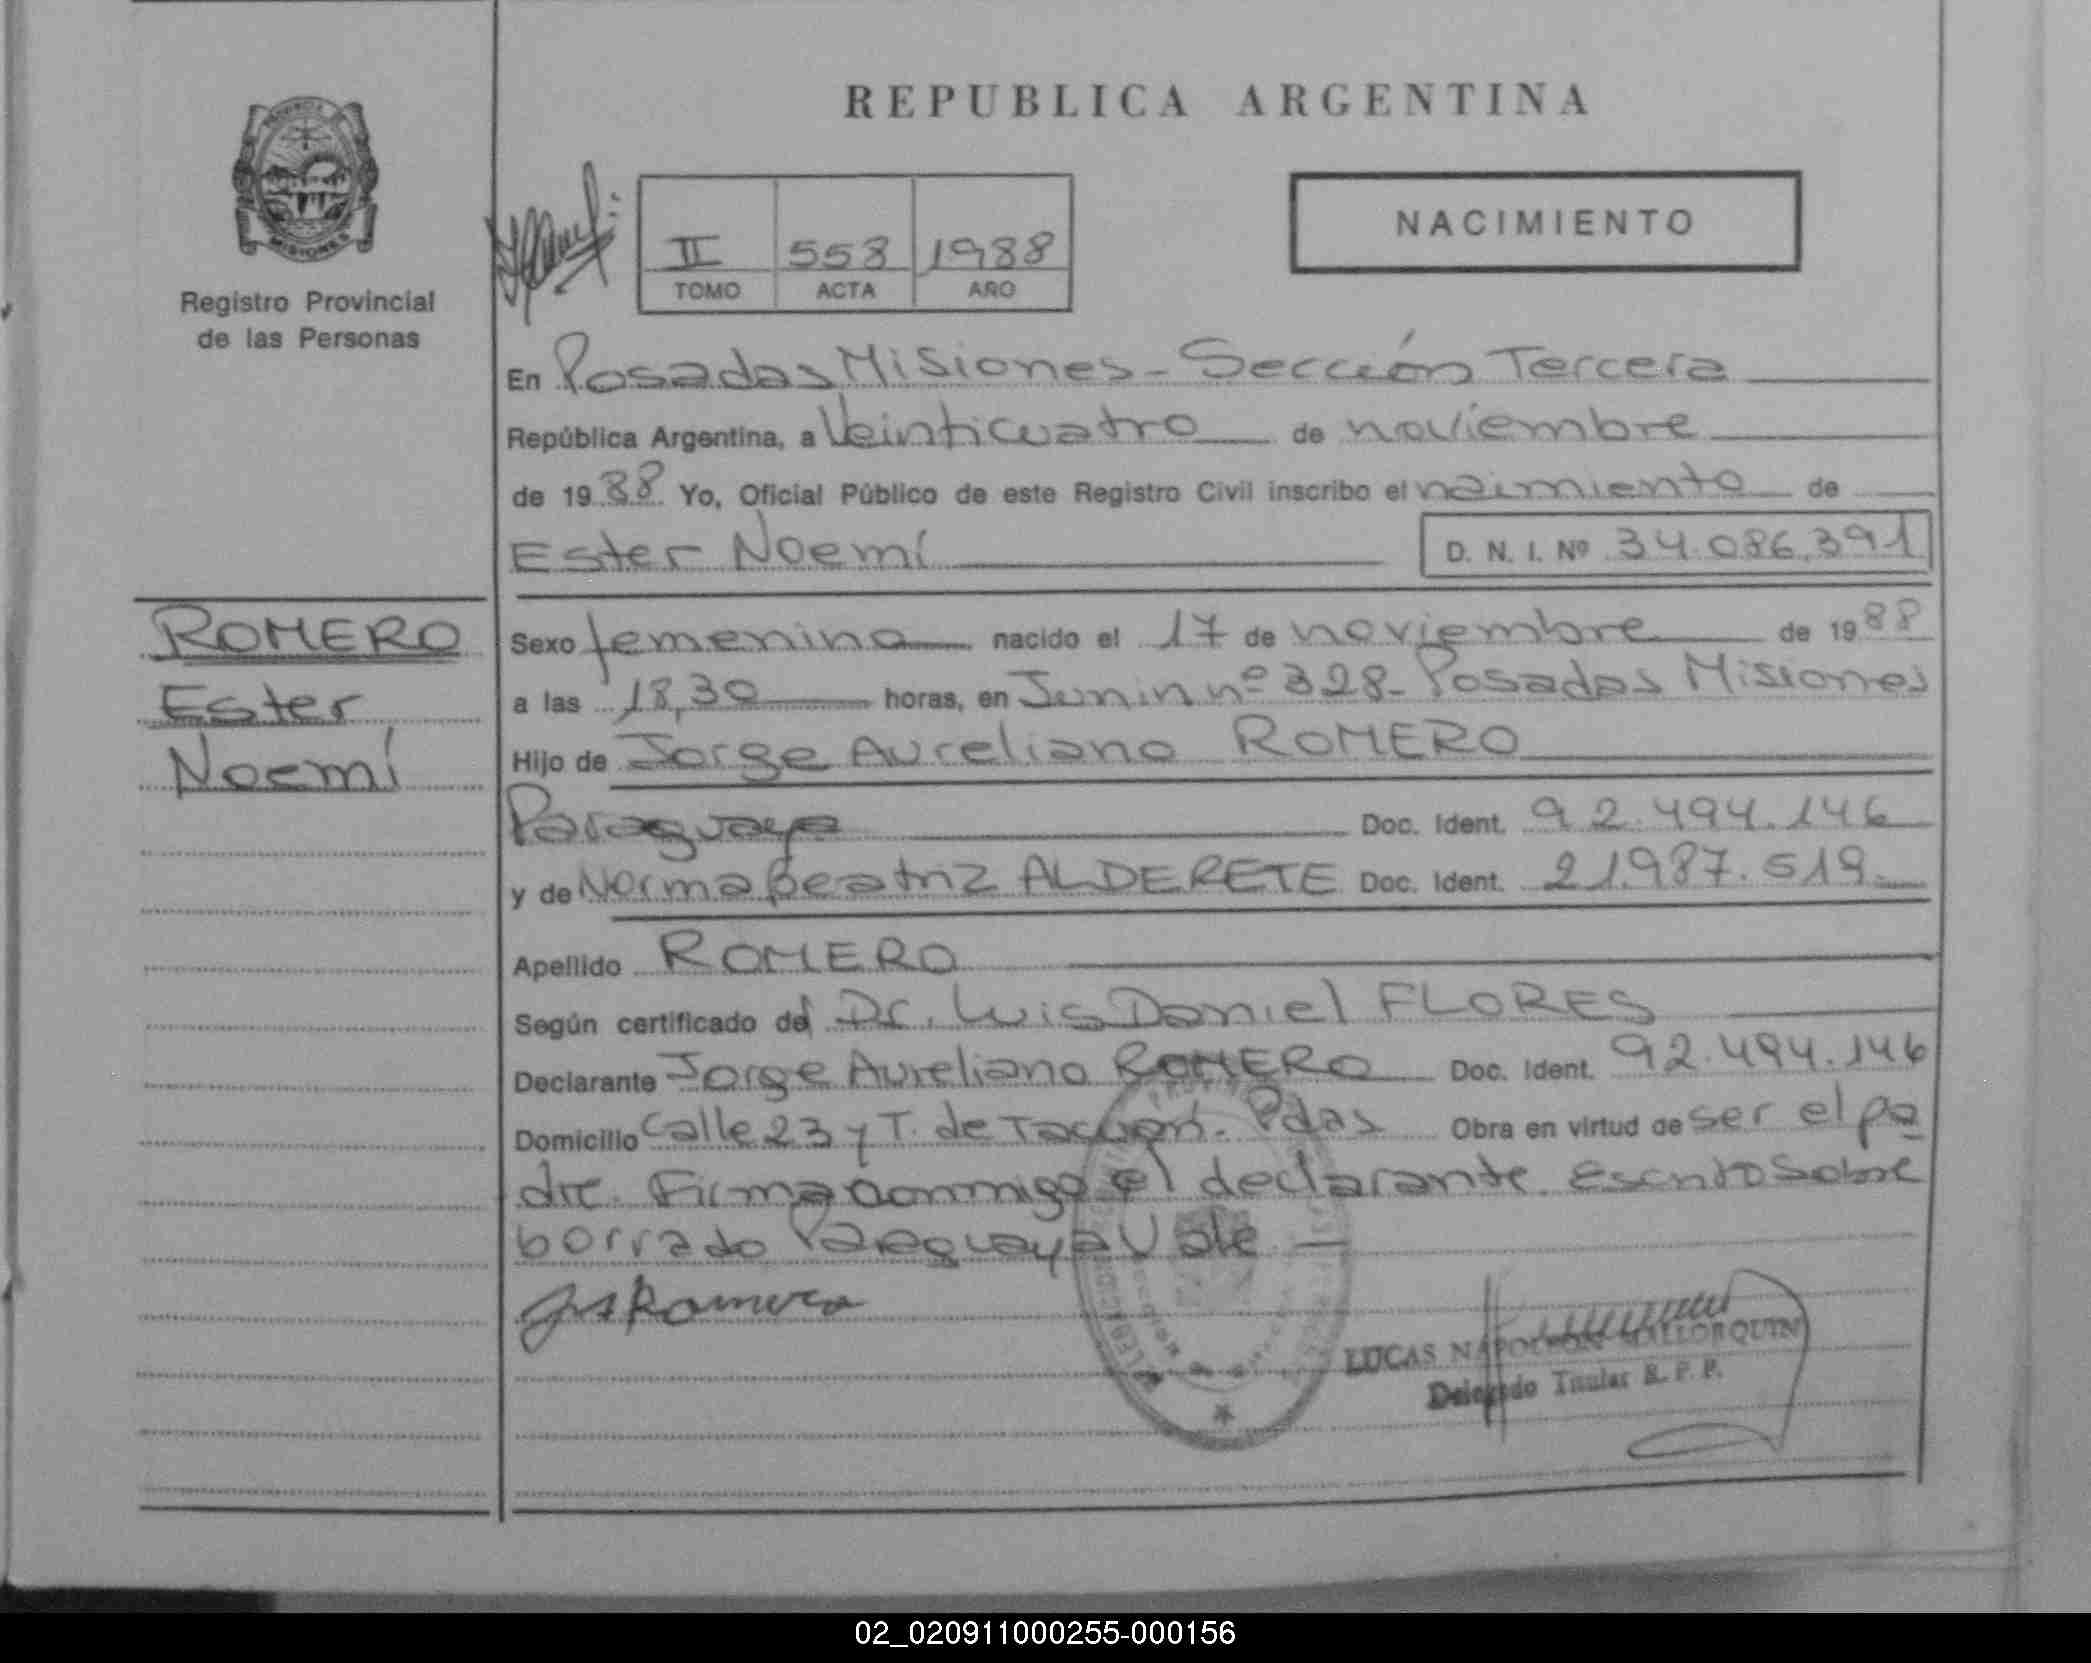 REPUBLICA ARGENTINA
NACIMIENTO
II 558 1988
TOMO ACTA AÑO
MISIONES
Registro Provincial
de las Personas
En Posadas Misiones - Sección Tercera
República Argentina, a Veinticuatro de noviembre
de 1988 Yo, Oficial Público de este Registro Civil inscribo el naimiento de
Ester Noemí D. N. I. Nº 34.086.391
ROMERO
Ester
Noemí
Sexo femenino nacido el 17 de noviembre de 1988
a las 18,30 horas, en Junin nº 328- Posadas Misiones
Hijo de Jorge Aureliano ROMERO
Paraguaya Doc. Ident. 92.494.146
y de Norma Beatriz ALDERETE Doc. Ident. 21.987.519.
Apellido ROMERO
Según certificado del Dr. Luis Daniel FLORES
Declarante Jorge Aureliano ROMERO Doc. Ident. 92.494.146
Domicilio Calle 23 y T. de Pdas Obra en virtud de ser el pa
dre. Firma conmigo el declarante. Escrito sobre
borrado Paraguaya Vale —
Romero
LUCAS NAPOLEON MALLORQUIN
Delegado Titular R. P. P.
02_020911000255-000156